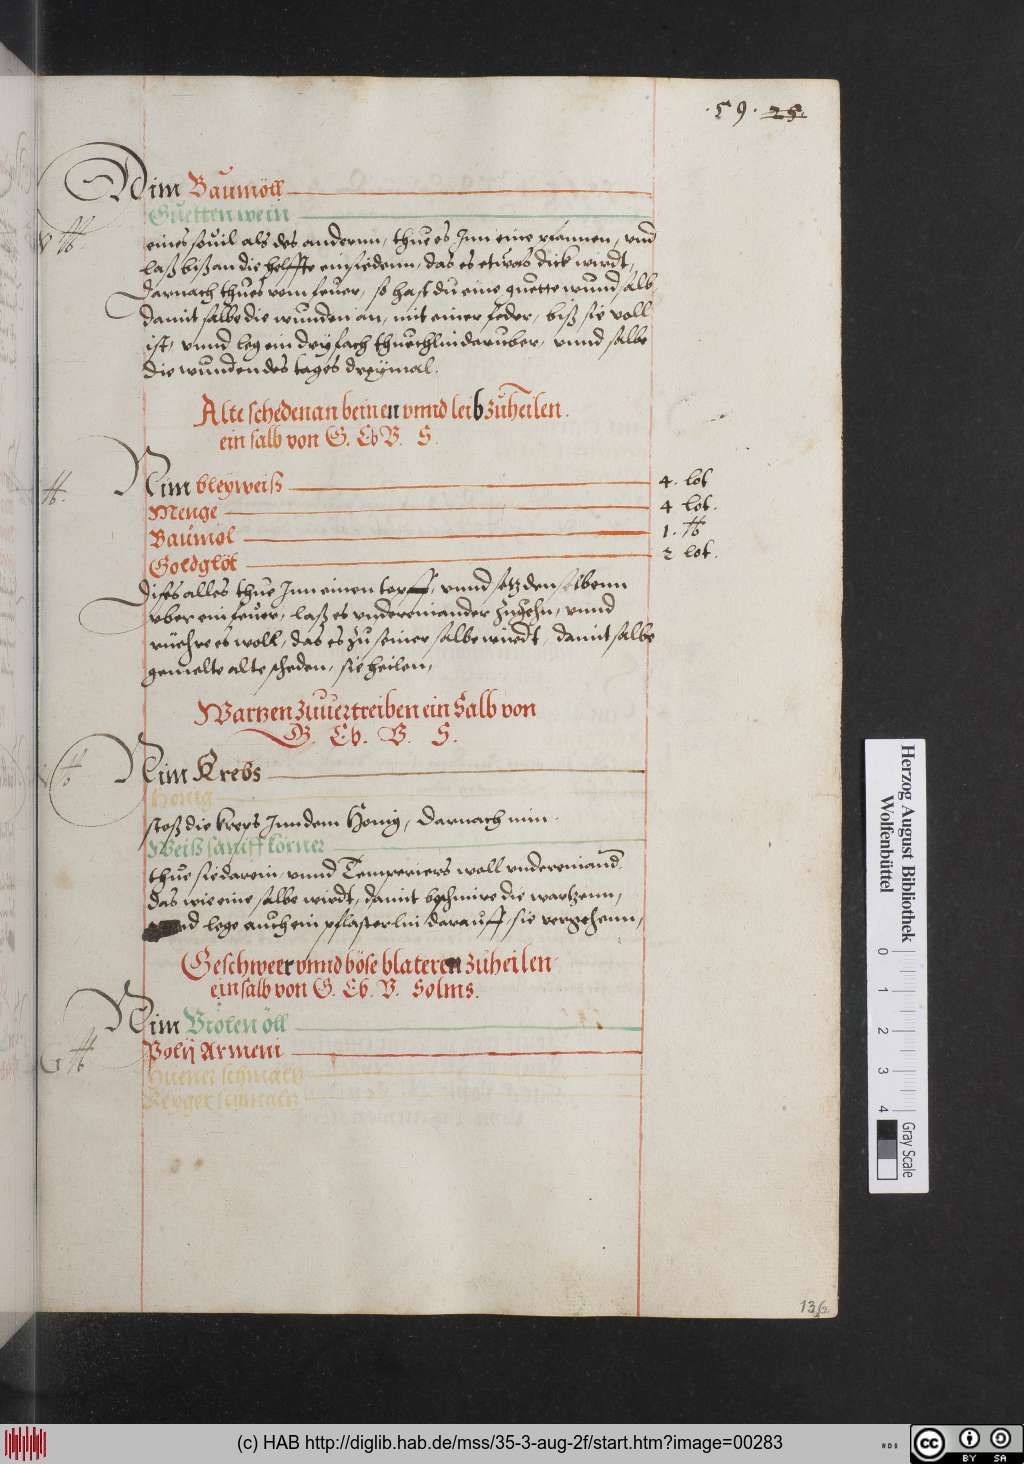 .59. 25.
Nim Baumöll
Guetten wein
eines souil als des andernn, thue es Inn eine pfannen, vnd
laß biß an die helffte einsiedenn, das es etwas dick wirdt,
darnach thues vom feuer, so hast du eine guette wund salb
damit salbe die wunden an, mit einer feder, biß sie voll
ist, vnnd leg ein dryfach thuechlin daruber, vnnd salbe
die wunden des tages dreymal.
Alte scheden an beinen vnnd leib zuheilen.
ein salb von G. Eb. V. S.
Nim bleyweiß 4. lot
Menge 4 lot.
Baumöl 1. ℔
Goldglöt 2 lot.
dises alles thue Inn einen topff, vnnd setz denselbenn
vber ein feuer, laß es vndereinander zugehn, vnnd
rüehre es woll, das es zu seiner salbe wirdt, damit salbe
gemelte alte scheden, sie heilen,
Wartzen zuuertreiben ein Salb von
G. Eb. V. S.
Nim Krebs
Honig
stoß die kreps Inn dem Honig, darnach nim
Weiß saniff körner
thue sie darein, vnnd Temperiers woll vndereinand
das wie eine salbe wirdt, damit beschmire die wartzenn,
vnnd lege auch ein pflasterlin darauff, sie vergehenn,
Geschweer vnnd böse blateren zuheilen
ein salb von G. Eb. V. Solms.
Nim Violen öll
Polij Armeni
Huener schmaltz
136.
Herzog August Bibliothek
Wolfenbüttel
0 1 2 3 4
Gray Scale
(c) HAB http://diglib.hab.de/mss/35-3-aug-2f/start.htm?image=00283
cc BY SA